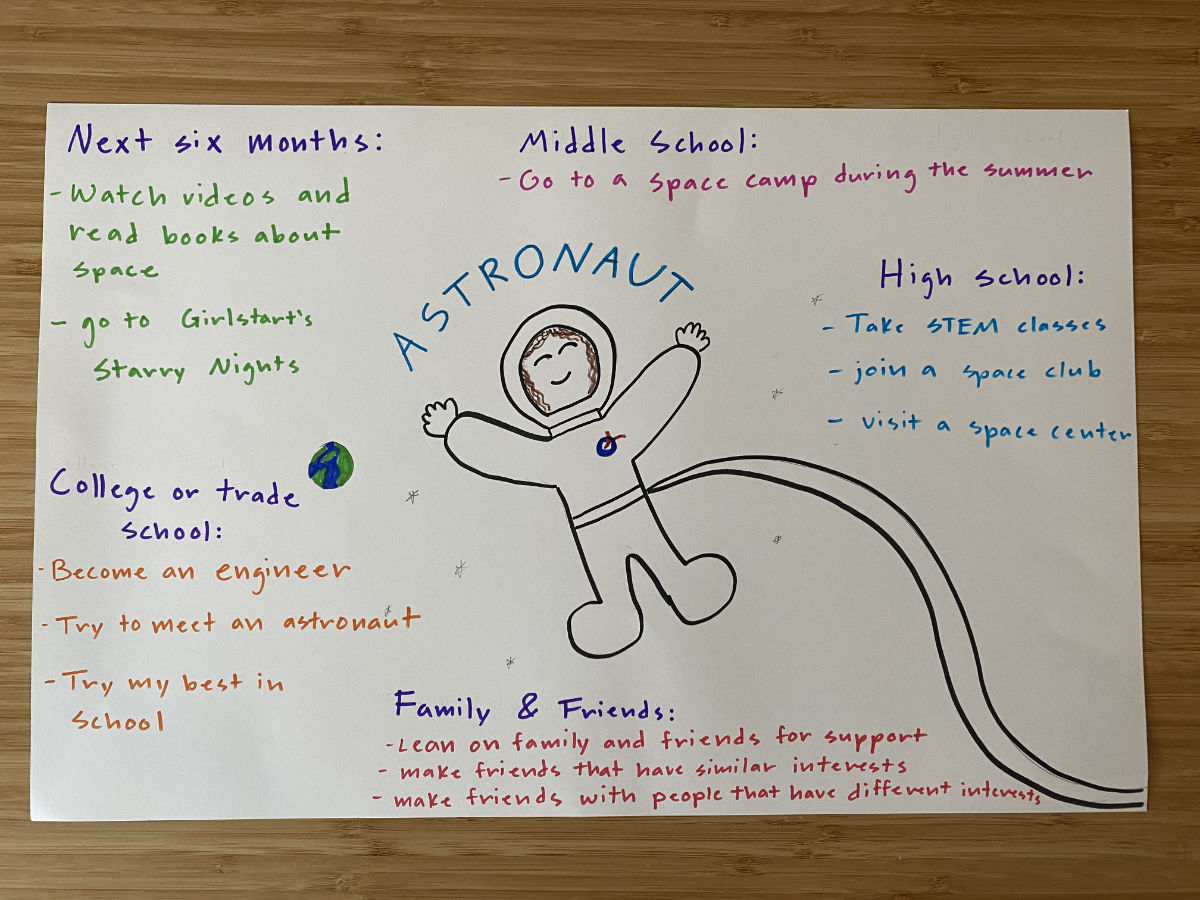 Next six months:
- Watch videos and
read books about
space
- go to Girlstart's
Starry Nights
Middle School:
- Go to a space camp during the summer
ASTRONAUT
High school:
- Take STEM classes
- join a space club
- visit a space center
College or trade
school:
- Become an engineer
- Try to meet an astronaut
- Try my best in
school
Family & Friends:
- Lean on family and friends for support
- make friends that have similar interests
- make friends with people that have different interests